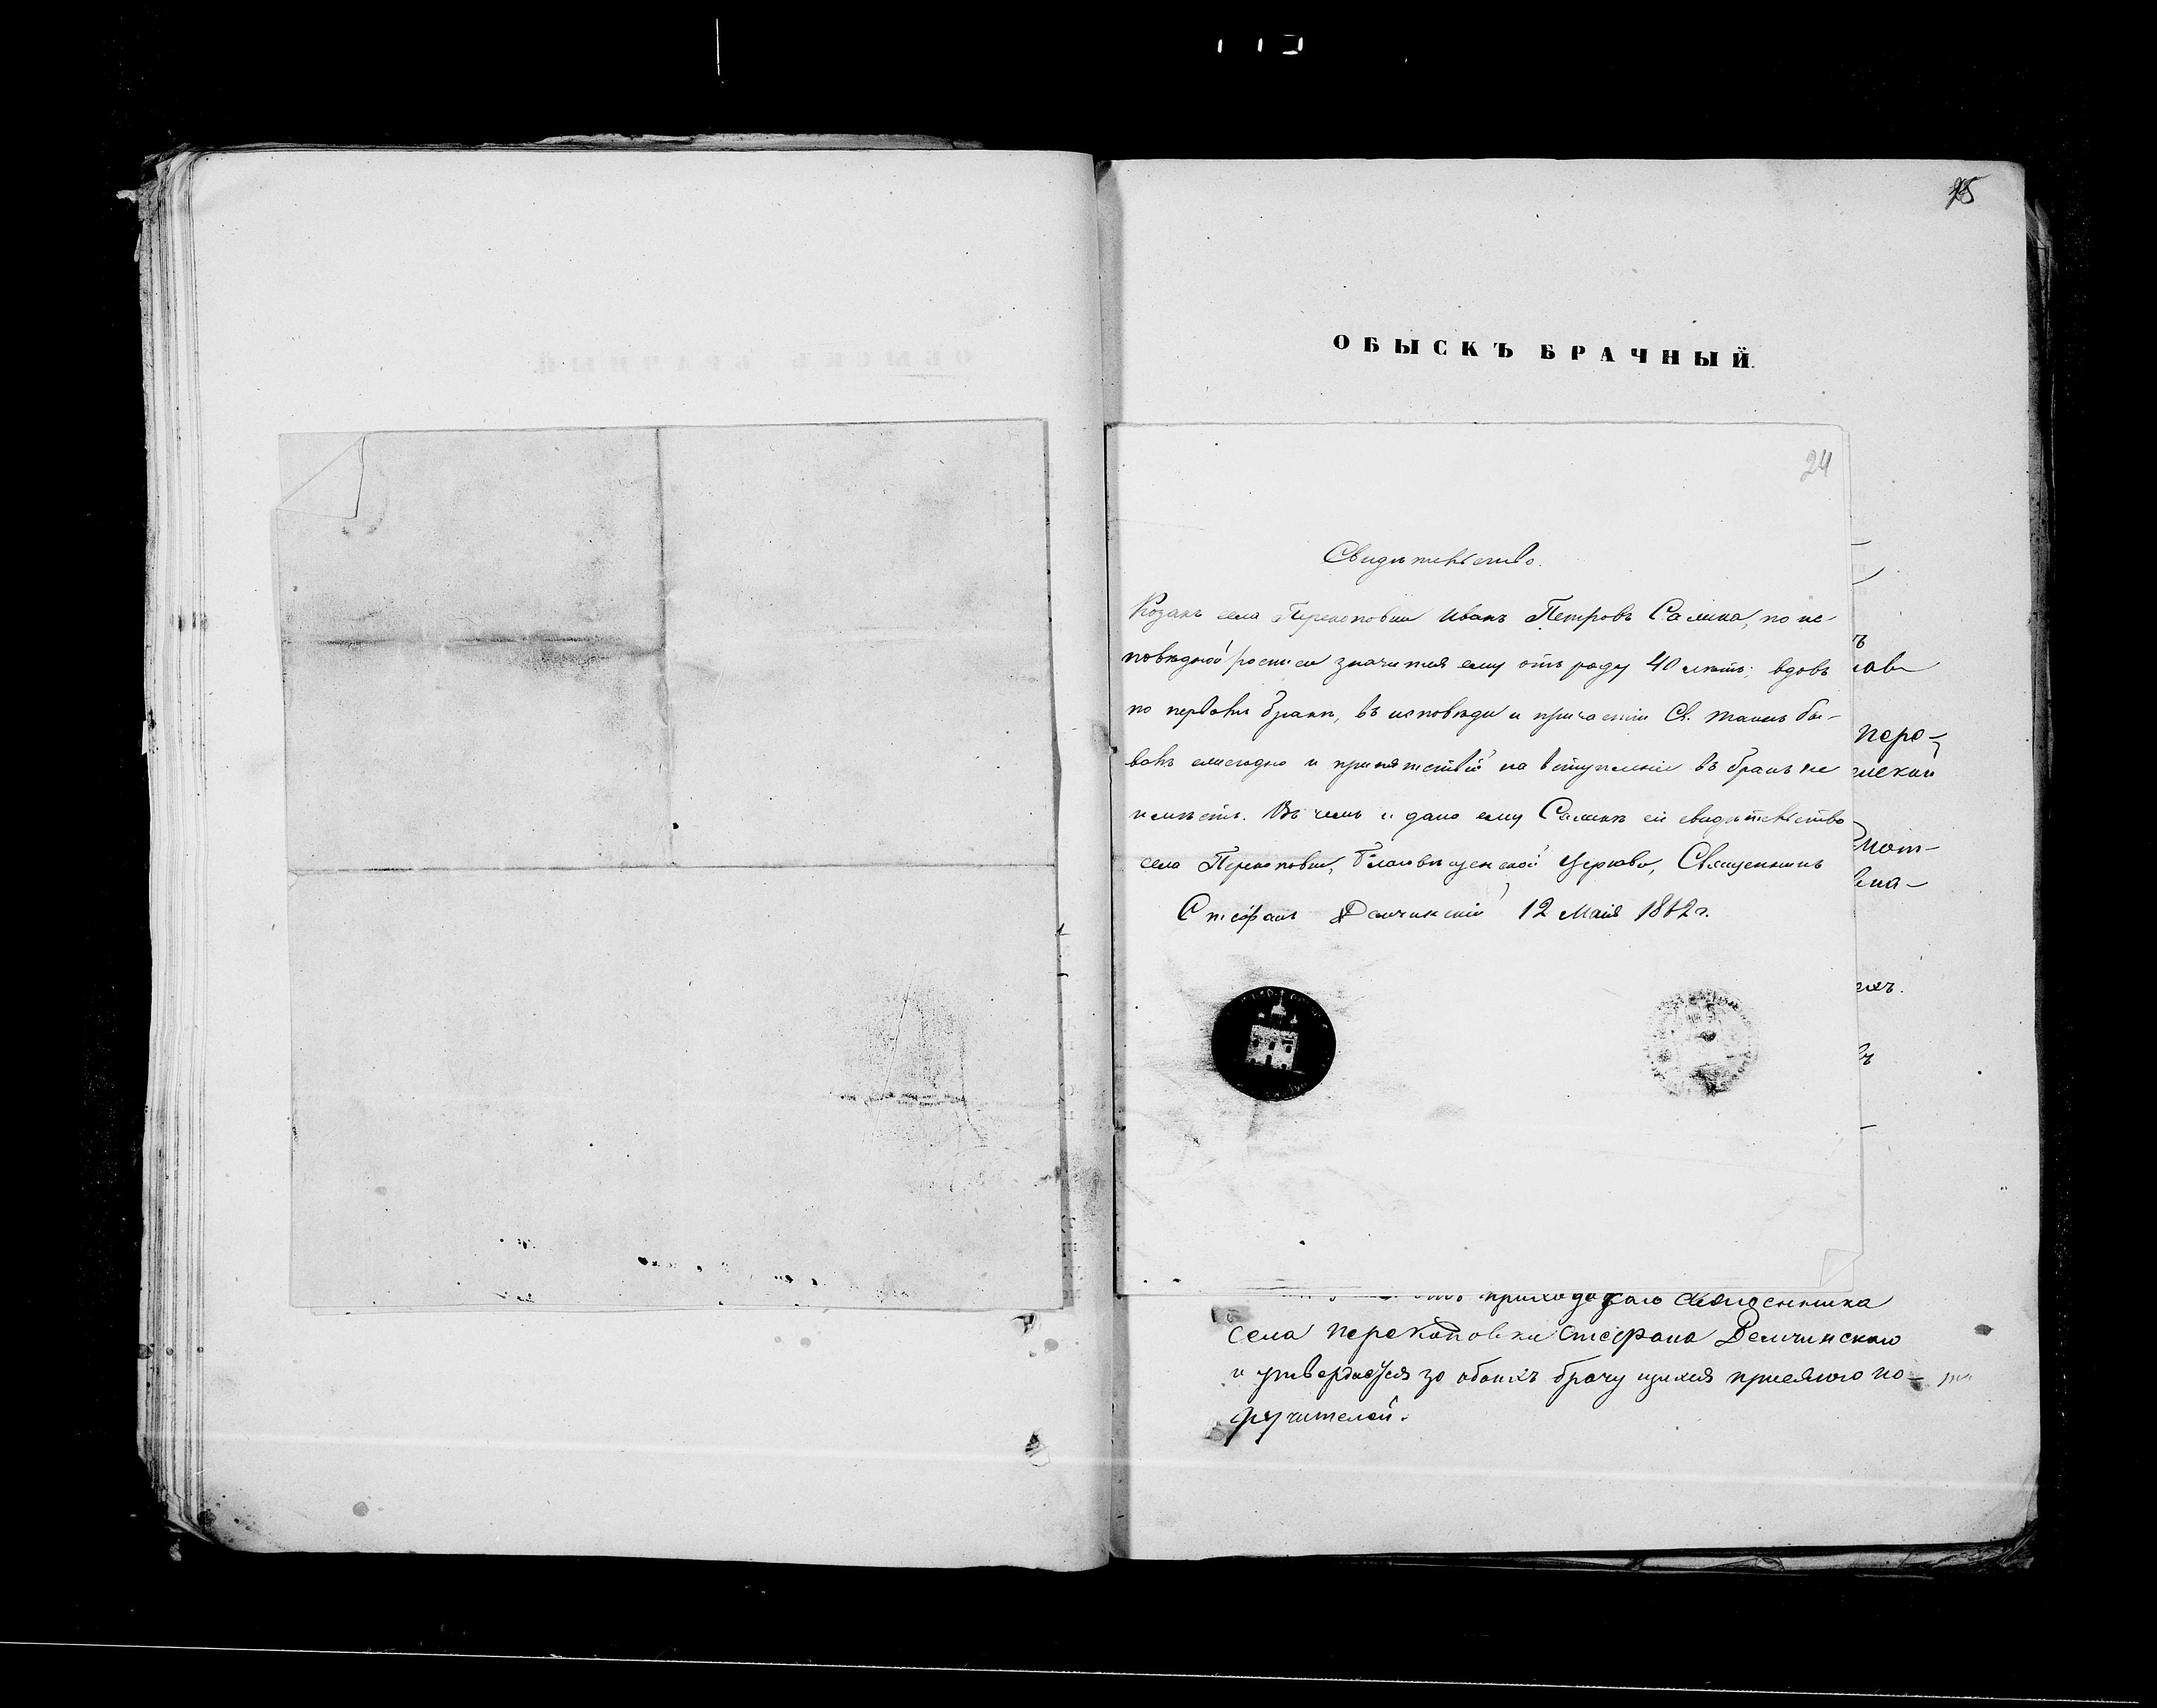 ОБЫСКЪ БРАЧНЫЙ.
24
Свидѣтельство.
Козакъ села Перекоповки Иванъ Петровъ Салика, по ис-
повѣдной росписи значится ему отъ роду 40 лѣтъ; вдовъ
по первомъ бракѣ, въ исповѣди и причастіи Св. таинъ бы-
ваетъ ежегодно и препятствій на вступленіе въ бракъ не
имѣетъ. Въ чемъ и дано ему сіе свидѣтельство
села Перекоповки, Благовѣщенской Церкви, Священникъ
Стефанъ Демчинскій 12 Маія 1862 г.
перо-
мат-
приходскаго священника
села перекоповки стефана Демчинскаго
и утверждается за обоихъ брачущихся присягою по-
ручителей.